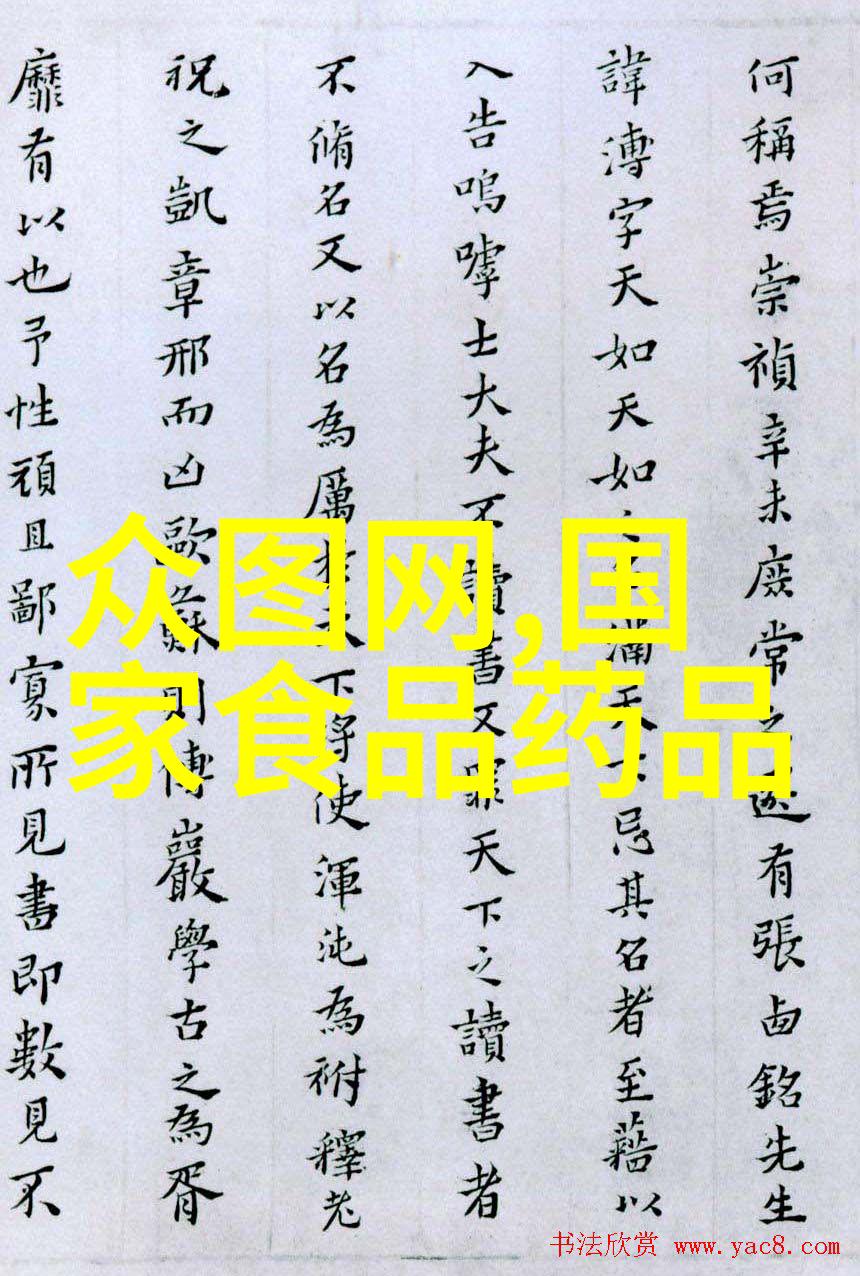 何稱焉崇禎辛未庶常之選有張卥銘先生
諱溥字天如天如之名滿天下忌其名者至藉以
入告嗚嘑士大夫不讀書又罪天下之讀書者
不脩名又以名為厲於天下將使渾沌為祔釋老
祝之凱章邢而凶歐蘇則傅巖學古之為胥
靡有以也予性頑且鄙寡所見書即數見不
众图网,国
家食品药品
书法欣赏 www.yac8.com